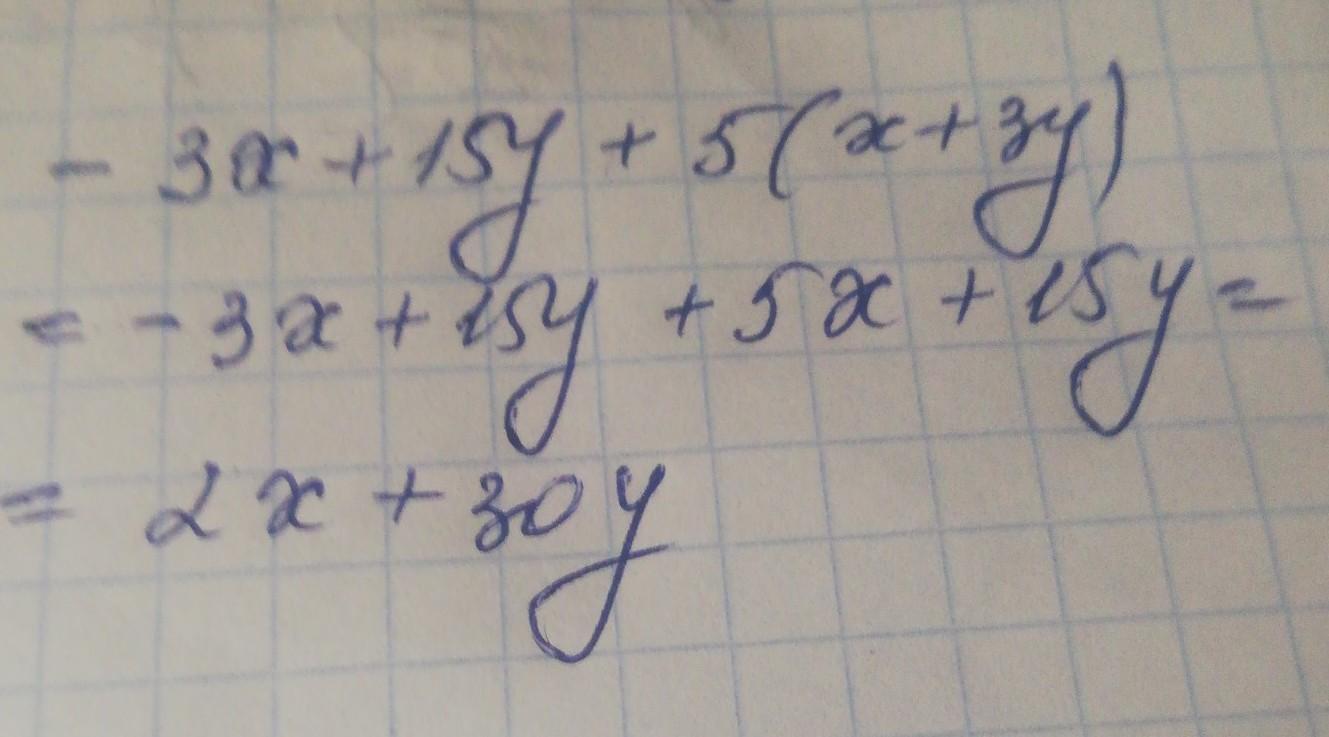 - 3x + 15y + 5(x + 3y)
= - 3x + 15y + 5x + 15y =
= 2x + 30y